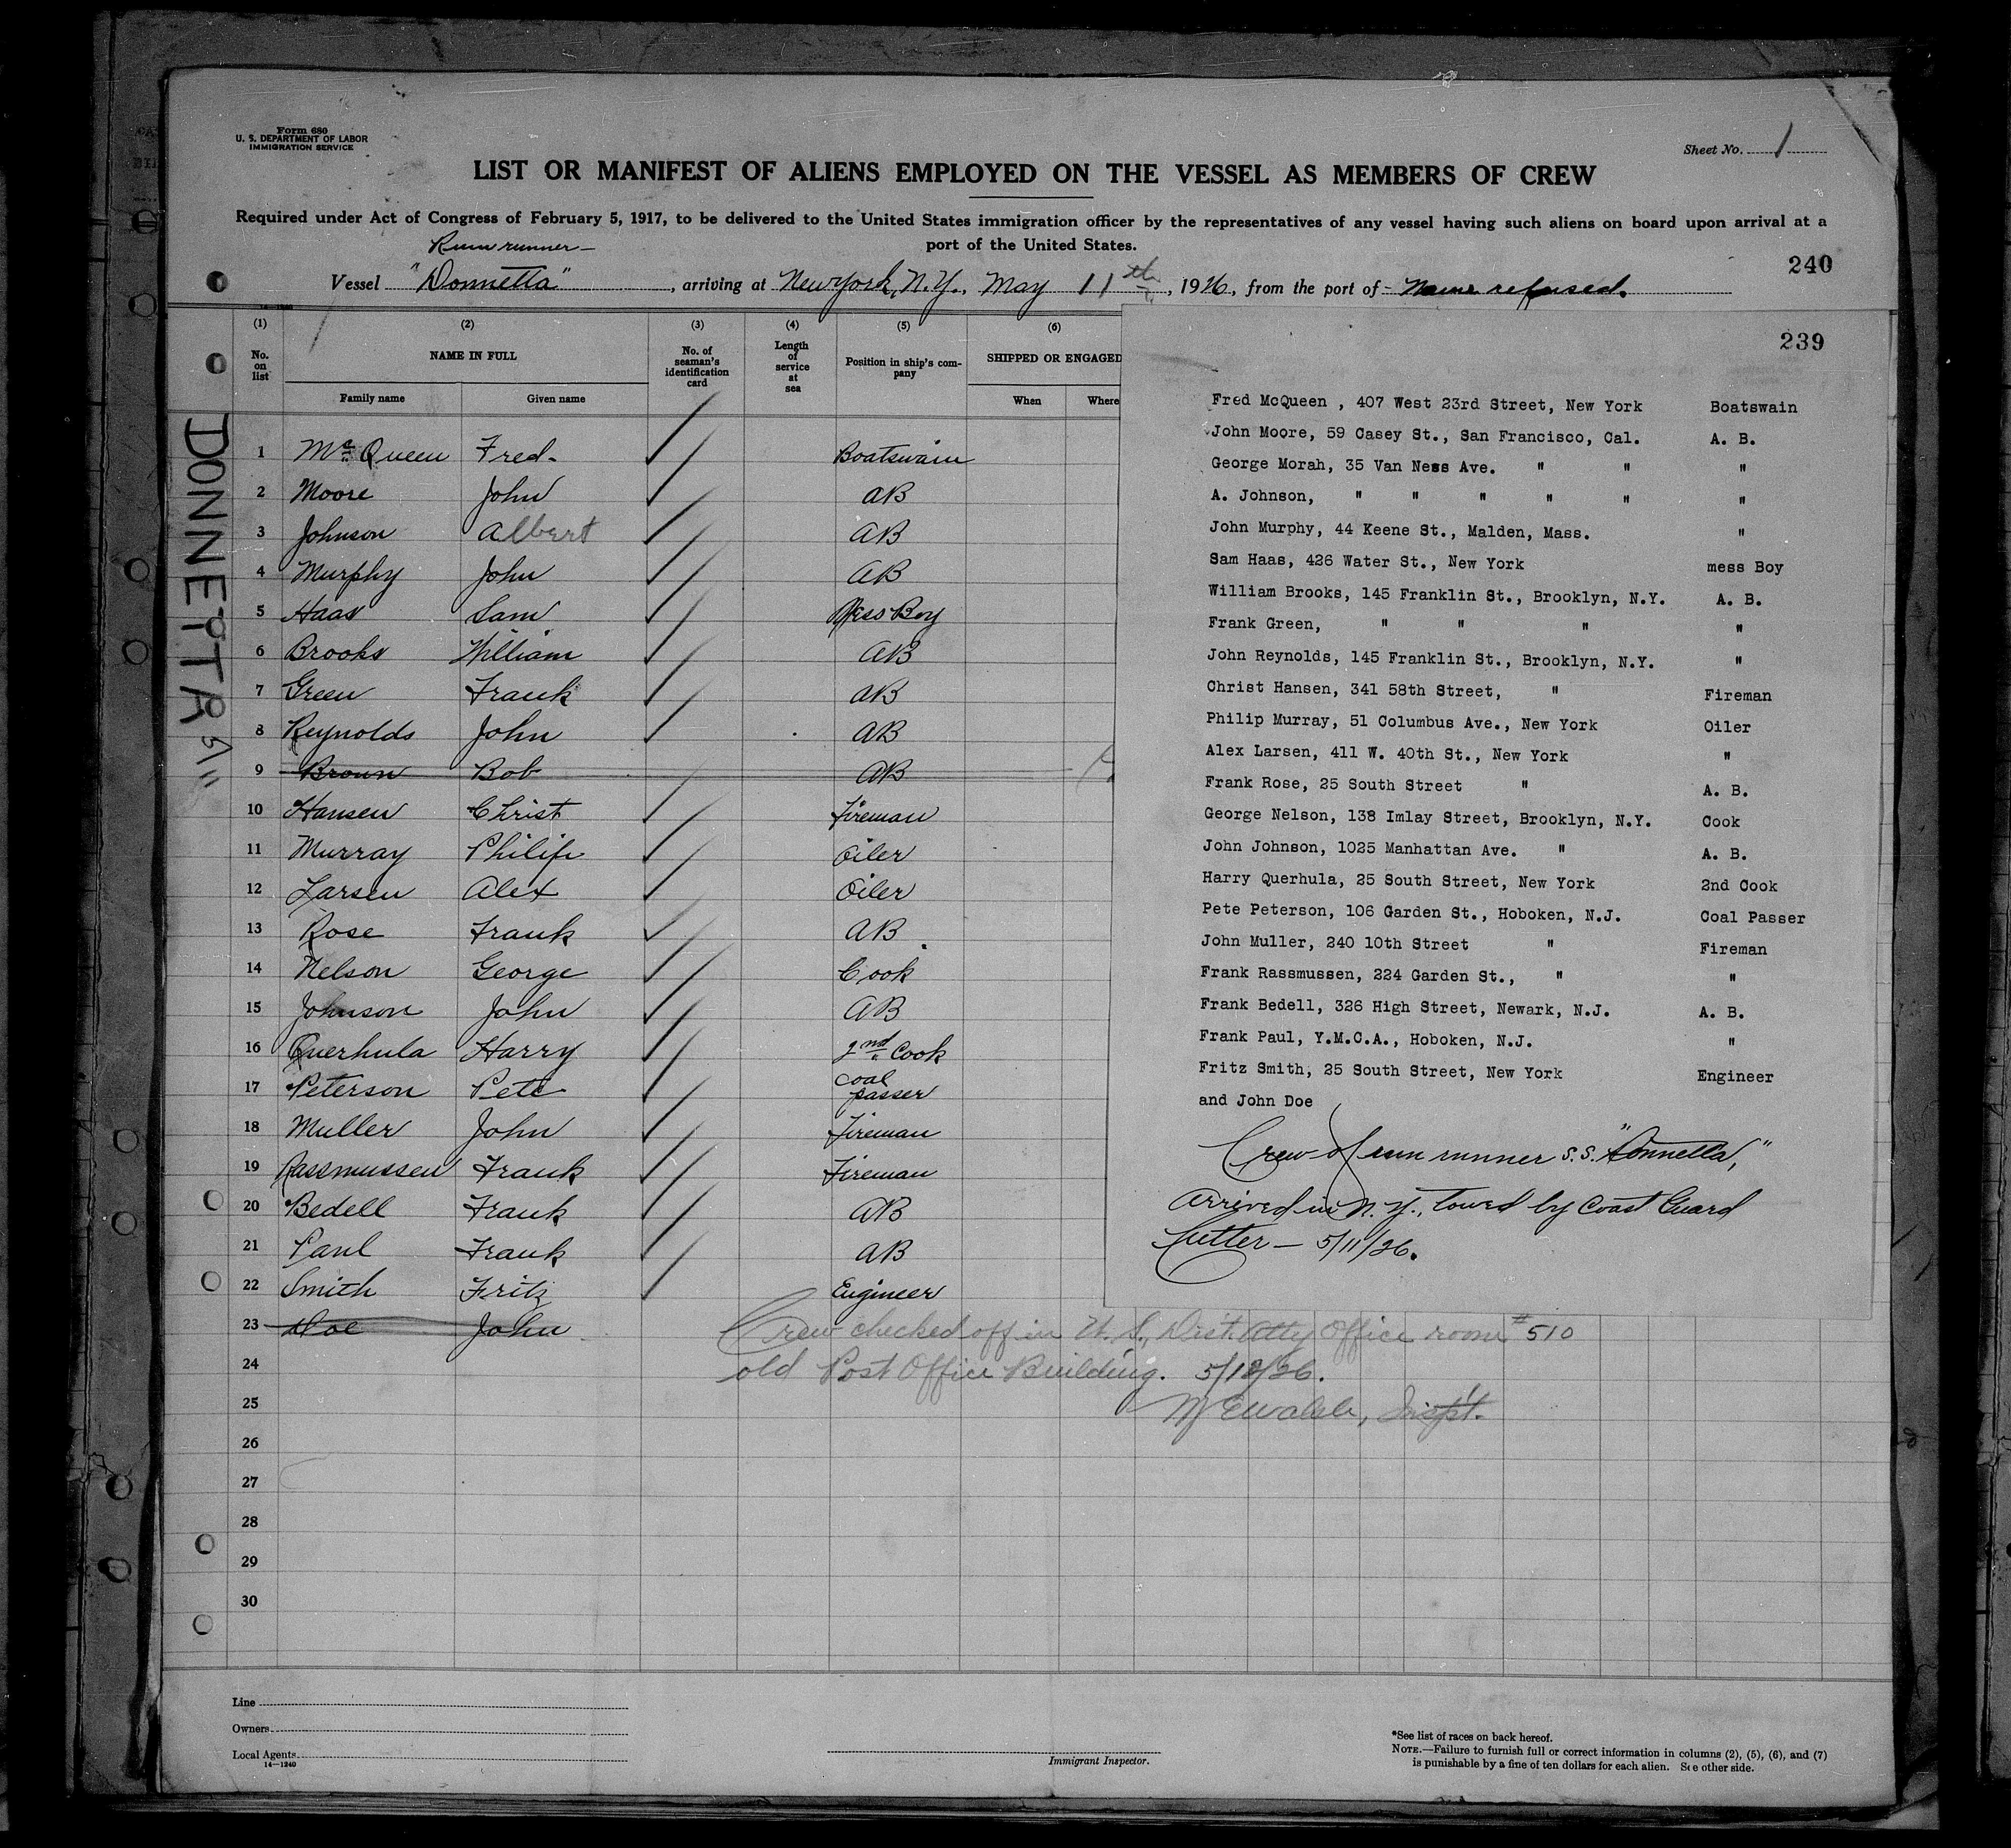 Form 680
U. S. DEPARTMENT OF LABOR
IMMIGRATION SERVICE
Sheet No. 1
LIST OR MANIFEST OF ALIENS EMPLOYED ON THE VESSEL AS MEMBERS OF CREW
Required under Act of Congress of February 5, 1917, to be delivered to the United States immigration officer by the representatives of any vessel having such aliens on board upon arrival at a
port of the United States.
Rum runner —
240
Vessel "Donnetta", arriving at New York, N.Y., May 11th, 1926, from the port of - Name refused.
(1) (2) (3) (4) (5) (6)
No. on list NAME IN FULL No. of seaman's identification card Length of service at sea Position in ship's company SHIPPED OR ENGAGED
Family name Given name When Where
DONNETTA
1 McQueen Fred. Boatswain
2 Moore John AB
3 Johnson Albert AB
4 Murphy John AB
5 Haas Sam Mess Boy
6 Brooks William AB
7 Green Frank AB
8 Reynolds John AB
9 Brown Bob AB
10 Hansen Christ Fireman
11 Murray Philip Oiler
12 Larsen Alex Oiler
13 Rose Frank AB
14 Nelson George Cook
15 Johnson John AB
16 Querhula Harry 2nd Cook
17 Peterson Pete Coal passer
18 Muller John Fireman
19 Rassmussen Frank Fireman
20 Bedell Frank AB
21 Paul Frank AB
22 Smith Fritz Engineer
23 Doe John
24
25
26
27
28
29
30
239
Fred McQueen , 407 West 23rd Street, New York Boatswain
John Moore, 59 Casey St., San Francisco, Cal. A. B.
George Morah, 35 Van Ness Ave. " " "
A. Johnson, " " " " " "
John Murphy, 44 Keene St., Malden, Mass. "
Sam Haas, 426 Water St., New York mess Boy
William Brooks, 145 Franklin St., Brooklyn, N.Y. A. B.
Frank Green, " " " "
John Reynolds, 145 Franklin St., Brooklyn, N.Y. "
Christ Hansen, 341 58th Street, " Fireman
Philip Murray, 51 Columbus Ave., New York Oiler
Alex Larsen, 411 W. 40th St., New York "
Frank Rose, 25 South Street " A. B.
George Nelson, 138 Imlay Street, Brooklyn, N.Y. Cook
John Johnson, 1025 Manhattan Ave. " A. B.
Harry Querhula, 25 South Street, New York 2nd Cook
Pete Peterson, 106 Garden St., Hoboken, N.J. Coal Passer
John Muller, 240 10th Street " Fireman
Frank Rassmussen, 224 Garden St., " "
Frank Bedell, 326 High Street, Newark, N.J. A. B.
Frank Paul, Y.M.C.A., Hoboken, N.J. "
Fritz Smith, 25 South Street, New York Engineer
and John Doe
Crew of rum runner S.S. "Donnetta,"
arrived in N.Y., towed by Coast Guard
Cutter — 5/11/26.
Crew checked off in U.S. Dist. Atty Office room #510
old Post Office Building. 5/12/26.
M E Walsh, Insp't.
Line
Owners
Local Agents
14—1240
Immigrant Inspector.
*See list of races on back hereof.
NOTE.—Failure to furnish full or correct information in columns (2), (5), (6), and (7)
is punishable by a fine of ten dollars for each alien. See other side.